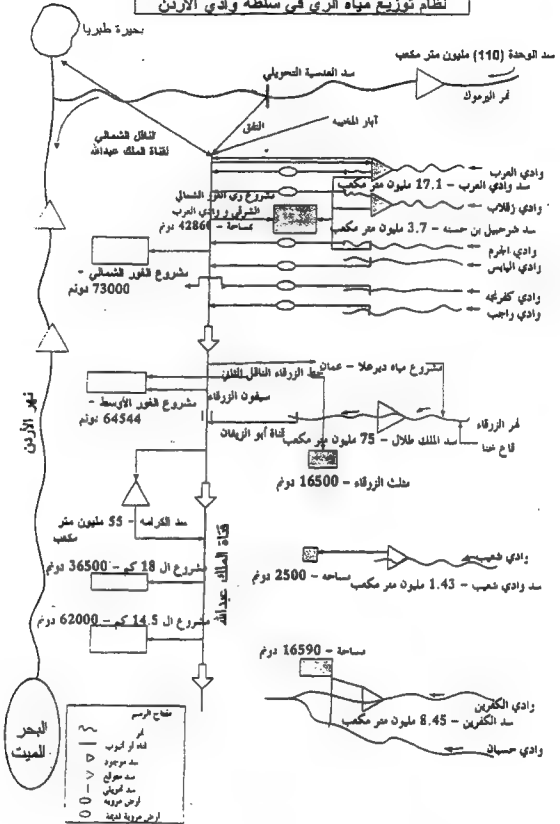 نظام توزيع مياه الري في سلطة وادي الأردن
بحيرة طبريا
سد الوحدة (110) مليون متر مكعب
سد العدسية التحويلي
نهر اليرموك
النفق
آبار المخيبه
الناقل الشمالي
لقناة الملك عبدالله
وادي العرب
سد وادي العرب - 17.1 مليون متر مكعب
وادي زقلاب
مشروع ري الغور الشمالي
الشرقي و وادي العرب
بمساحة - 42866 دونم
سد شرحبيل بن حسنه - 3.7 مليون متر مكعب
وادي الجرم
وادي اليابس
مشروع الغور الشمالي -
73000 دونم
وادي كفرنجه
وادي راجب
مشروع مياه ديرعلا - عمان
خط الزرقاء الناقل
سيفون الزرقاء
مشروع الغور الأوسط -
64544 دونم
نهر الزرقاء
قناة أبو الزيغان
سد الملك طلال - 75 مليون متر مكعب
قاع خنا
مثلث الزرقاء - 16500 دونم
نهر الأردن
سد الكرامه - 55 مليون متر
مكعب
قناة الملك عبدالله
وادي شعيب
مساحه - 2500 دونم
سد وادي شعيب - 1.43 مليون متر مكعب
مشروع ال 18 كم - 36500 دونم
مشروع ال 14.5 كم - 62000 دونم
مساحة - 16590 دونم
وادي الكفرين
سد الكفرين - 8.45 مليون متر مكعب
وادي حسبان
البحر
الميت
مفتاح الرسم
نهر
قناة أو أنبوب
سد موجود
سد متوقع
سد تحويلي
أرض مرويه
أرض مروية قديمة